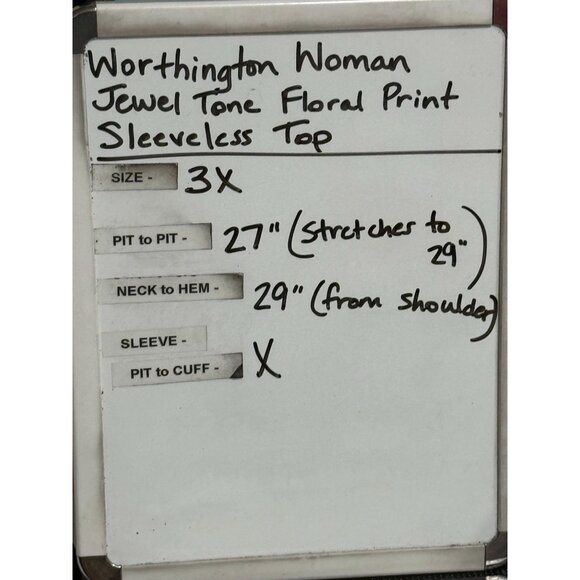 Worthington Woman
Jewel Tone Floral Print
Sleeveless Top
SIZE - 3X
PIT to PIT - 27" (Stretches to
29")
NECK to HEM - 29" (from shoulder)
SLEEVE -
PIT to CUFF - X